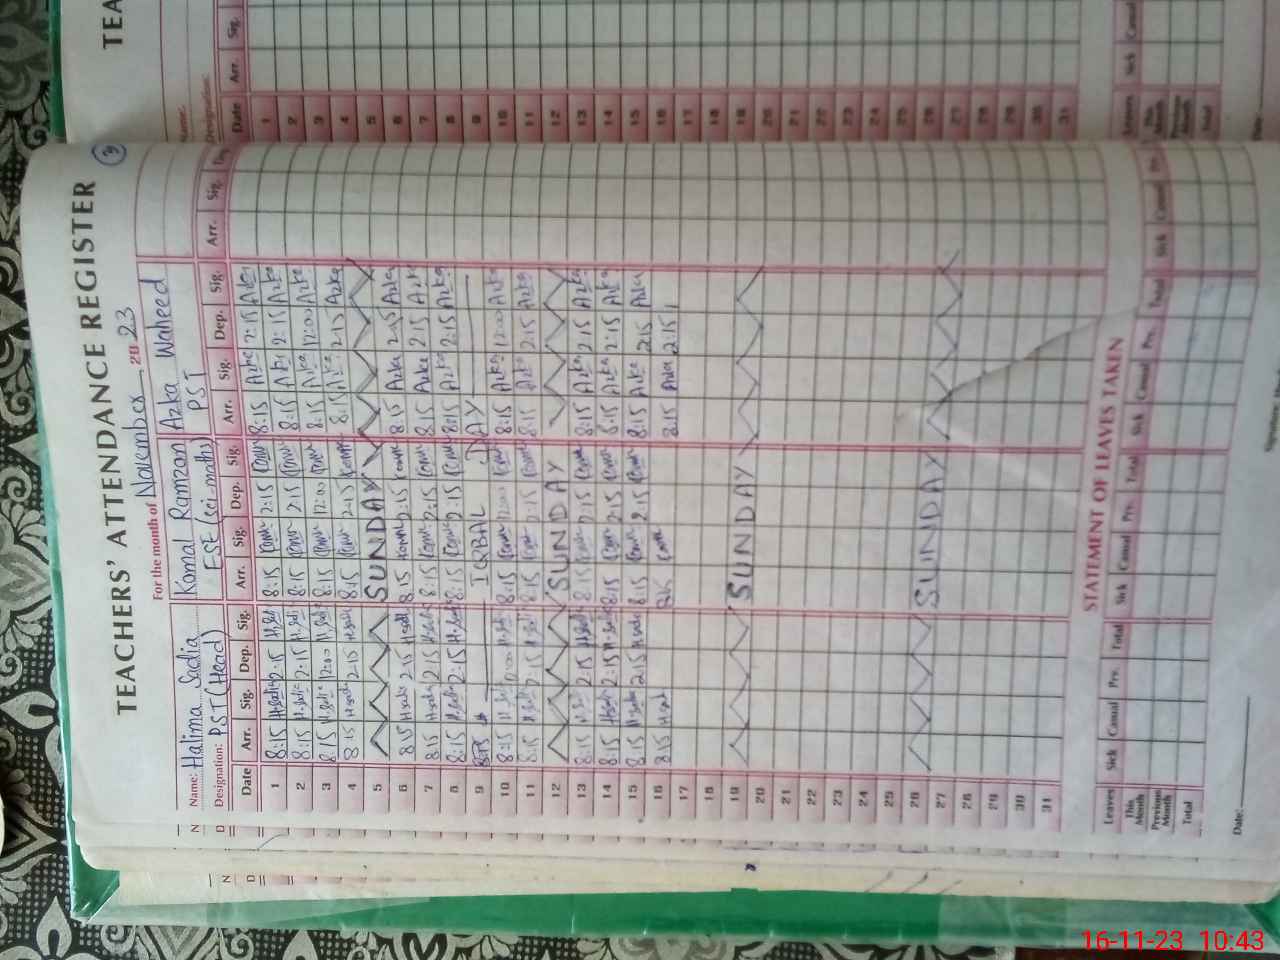 TEACHERS' ATTENDANCE REGISTER
3
For the month of November, 2023
Name: Halima Sadia Komal Ramzan Azka Waheed
Designation: PST (Head) EST (sci-maths) PST
Date Arr. Sig. Dep. Sig. Arr. Sig. Dep. Sig. Arr. Sig. Dep. Sig. Arr. Sig. Dep.
1 8:15 H.Sadia 2:15 H.Sadia 8:15 Komal 2:15 Komal 8:15 Azka 2:15 Azka
2 8:15 H.Sadia 2:15 H.Sadia 8:15 Komal 2:15 Komal 8:15 Azka 2:15 Azka
3 8:15 H.Sadia 12:00 H.Sadia 8:15 Komal 12:00 Komal 8:15 Azka 12:00 Azka
4 8:15 H.Sadia 2:15 H.Sadia 8:15 Komal 2:15 Komal 8:15 Azka 2:15 Azka
5 SUNDAY
6 8:15 H.Sadia 2:15 H.Sadia 8:15 Komal 2:15 Komal 8:15 Azka 2:15 Azka
7 8:15 H.Sadia 2:15 H.Sadia 8:15 Komal 2:15 Komal 8:15 Azka 2:15 Azka
8 8:15 H.Sadia 2:15 H.Sadia 8:15 Komal 2:15 Komal 8:15 Azka 2:15 Azka
9 IQBAL DAY
10 8:15 H.Sadia 12:00 H.Sadia 8:15 Komal 12:00 Komal 8:15 Azka 12:00 Azka
11 8:15 H.Sadia 2:15 H.Sadia 8:15 Komal 2:15 Komal 8:15 Azka 2:15 Azka
12 SUNDAY
13 8:15 H.Sadia 2:15 H.Sadia 8:15 Komal 2:15 Komal 8:15 Azka 2:15 Azka
14 8:15 H.Sadia 2:15 H.Sadia 8:15 Komal 2:15 Komal 8:15 Azka 2:15 Azka
15 8:15 H.Sadia 2:15 H.Sadia 8:15 Komal 2:15 Komal 8:15 Azka 2:15 Azka
16 8:15 H.Sadia 8:15 Komal 8:15 Azka 2:15
17
18
19 SUNDAY
20
21
22
23
24
25
26 SUNDAY
27
28
29
30
31
STATEMENT OF LEAVES TAKEN
Leaves Sick Casual Prv. Total Sick Casual Prv. Total Sick Casual Prv. Total Sick Casual Prv.
This Month
Previous Month
Total
Date:
TEA
Name:
Designation:
Date Arr. Sig.
1
2
3
4
5
6
7
8
9
10
11
12
13
14
15
16
17
18
19
20
21
22
23
24
25
26
27
28
29
30
31
Leaves Sick Casual
This Month
Previous Month
Total
Date:
16-11-23 10:43